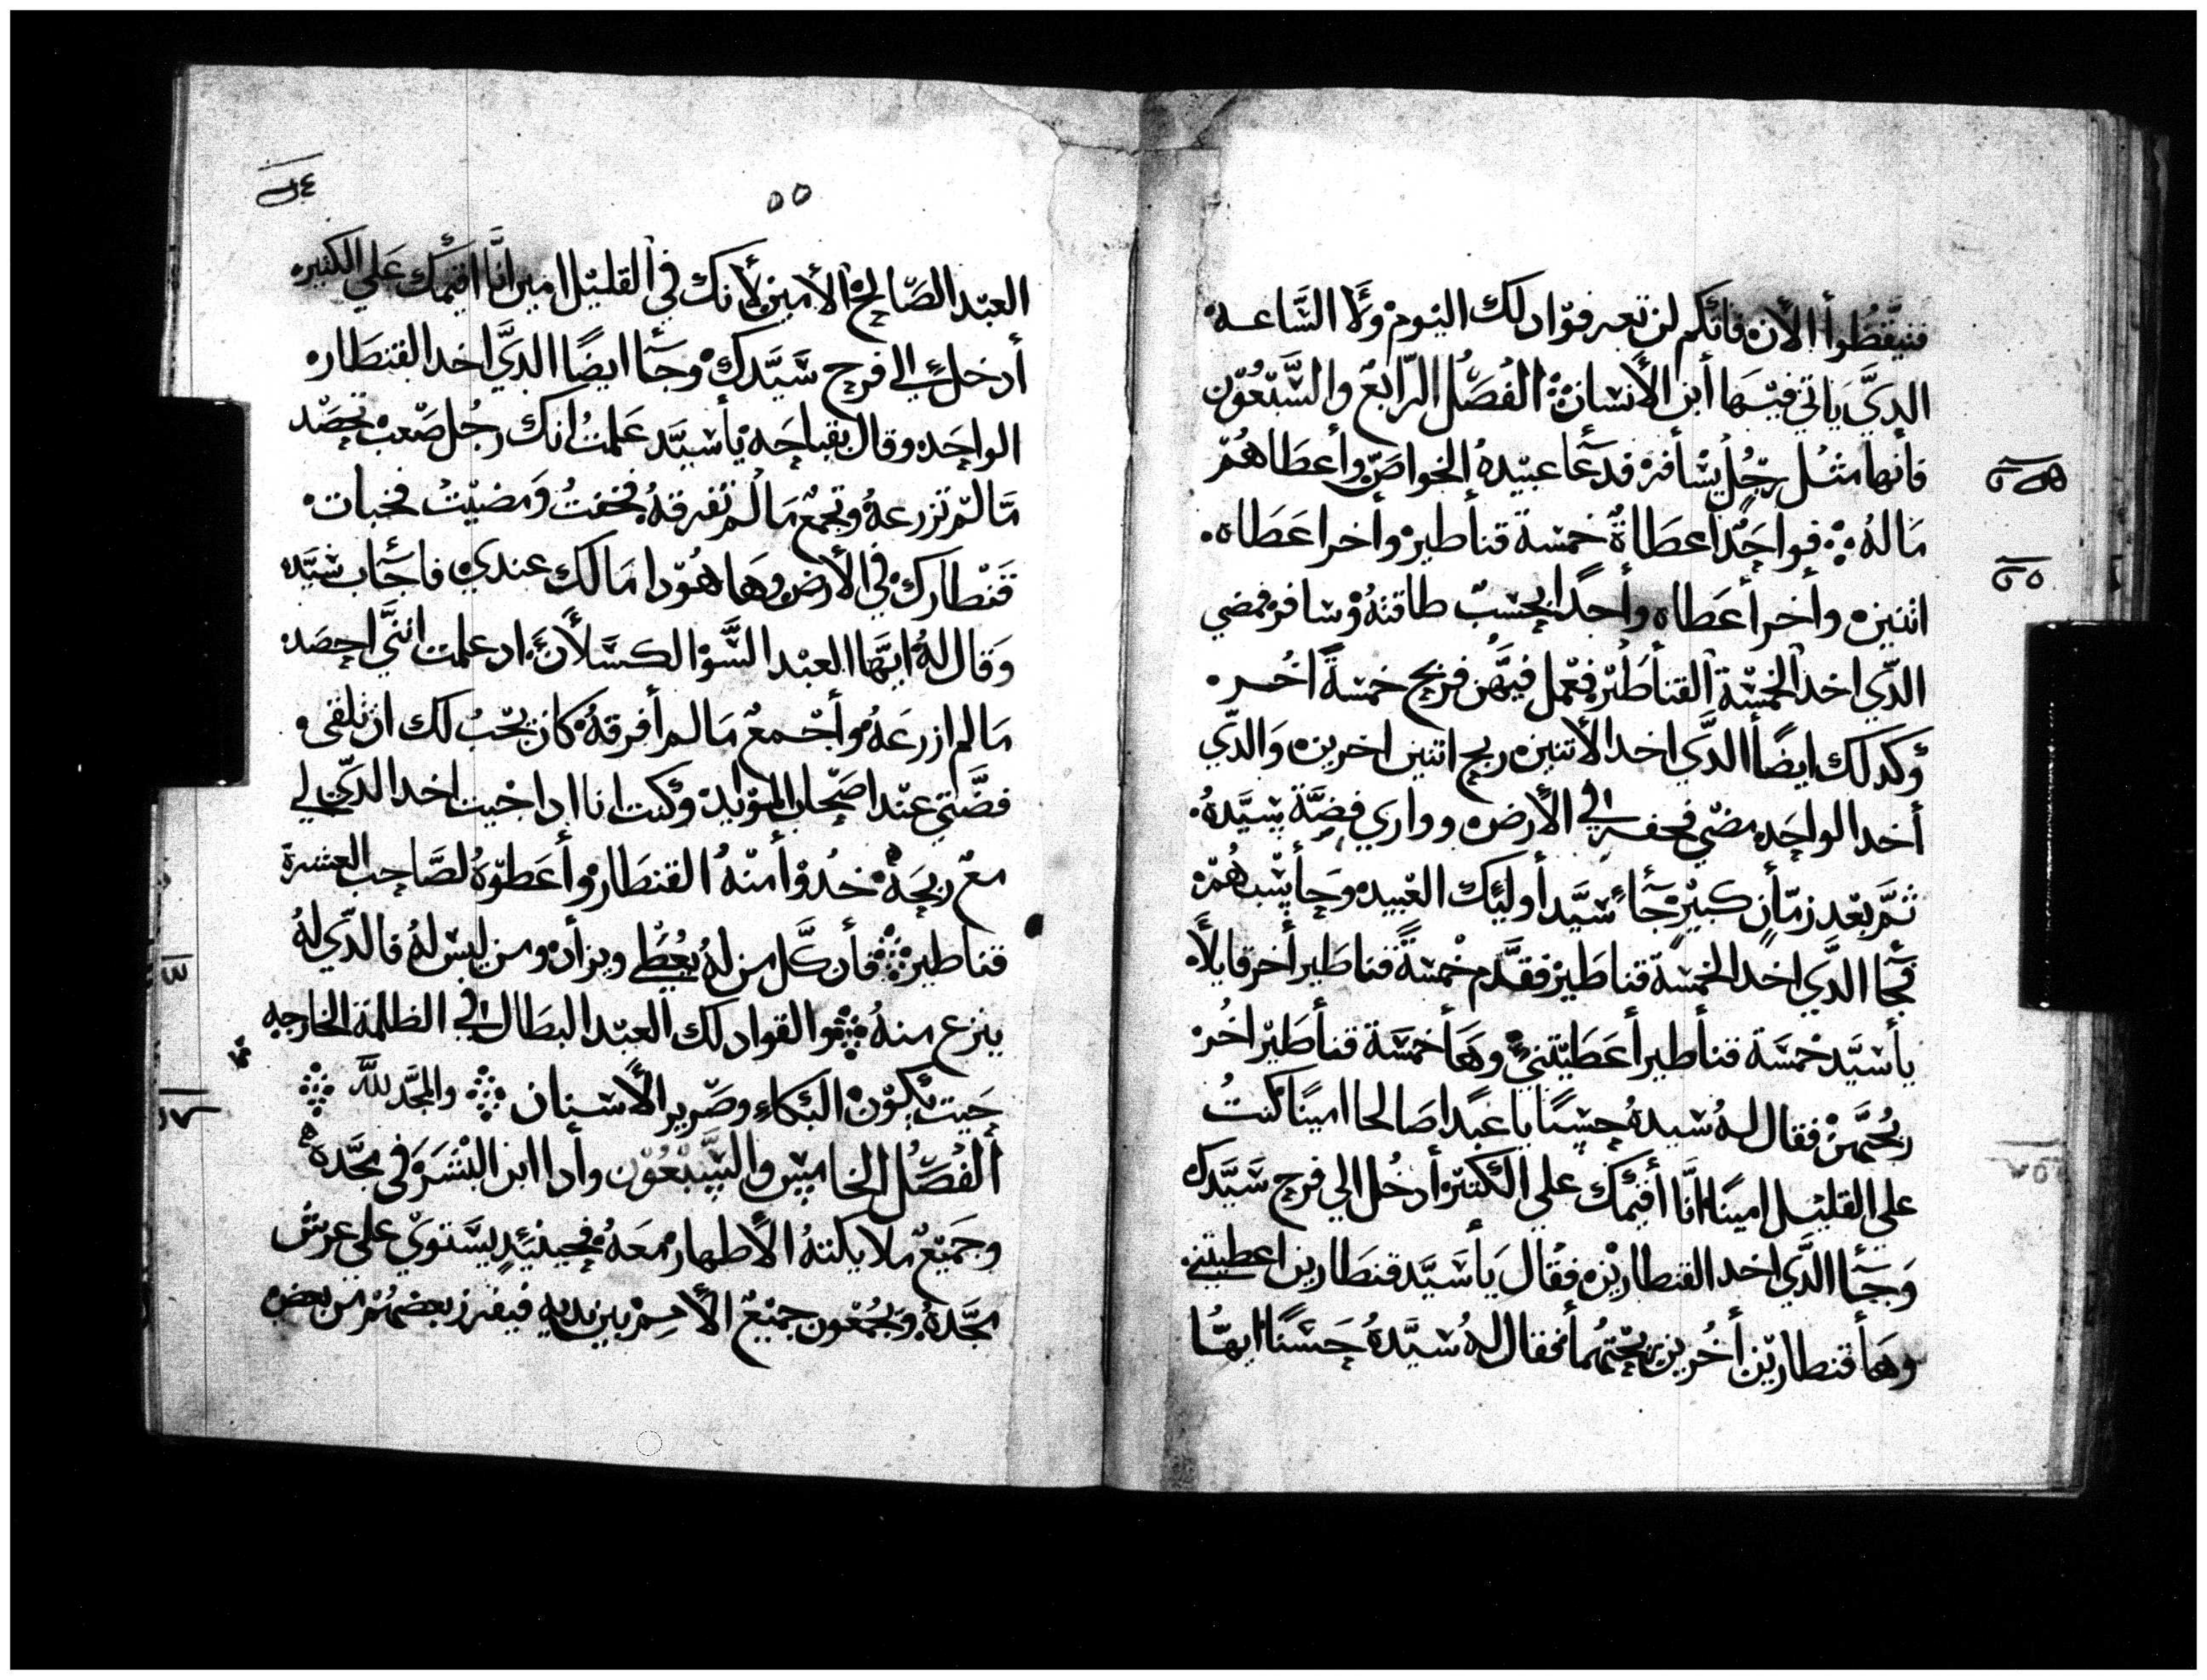 فتيقظوا الان فانكم لن تعرفوا دلك اليوم ولا الساعه
الدي ياتي فيها ابن الأنسان الفصل الرابع والسبعون
فانها مثل رجل يسافر فدعا عبيده الخواص وأعطاهم
ماله فواحدا اعطاه خمسة قناطير وأخر اعطاه
اتنين وأخر أعطاه وأحدا بحسب طاقته وسافر فمضي
الدي اخد الخمسة القناطير فعمل فيهن فربح خمسة اخر
وكدلك ايضا الدي اخد الأتنين ربح اتنين اخرين والدي
أخد الواحد مضي فحفر في الأرض وواري فضة سيده
ثم بعد زمان كبير جاء سيد أوليك العبيد وحاسبهم
فجا الدي اخد الخمسة قناطير فقدم خمسة قناطير أخر قايلا
يا سيد خمسة قناطير أعطيتني وها خمسة قناطير اخر
ربحتهن فقال له سيده حسنا يا عبدا صالحا امينا كنت
على القليل امينا انا أقيمك علي الكتير أدخل الي فرح سيدك
وجا الدي اخد القنطارين فقال يا سيد قنطارين اعطيتني
وها قنطارين أخرين ربحتهما فقال له سيده حسنا ايها
٥٥
العبد الصالح الأمين لأنك في القليل امين انا اقيمك علي الكتير
أدخل الي فرح سيدك وجا ايضا الدي اخد القنطار
الواحد وقال بقباحه يا سيد علمت انك رجل صعب تحصد
ما لم تزرعه وتجمع ما لم تفرقه فخفت ومضيت فخبات
قنطارك في الأرض وها هودا مالك عندي فاجاب سيده
وقال له ايها العبد السو الكسلان اد علمت انني احصد
ما لم ازرعه وأجمع ما لم أفرقه كان يجب لك ان تلقي
فضتي عند اصحاب الموايد وكنت انا ادا جيت اخد الدي لي
مع ربحه خدوا منه القنطار وأعطوه لصاحب العشرة
قناطير فأن كل من له يعطي ويزاد ومن ليس له فالدي له
ينزع منه والقوا دلك العبد البطال في الظلمة الخارجيه
حيت يكون البكاء وصرير الأسنان والمجد لله
الفصل الخامس والسبعون وأدا ابن البشر في مجده
وجميع ملايكته الأطهار معه فحينئد يستوي علي عرش
مجده ويجمعون جميع الأمم بين يديه فيفرز بعضهم من بعض